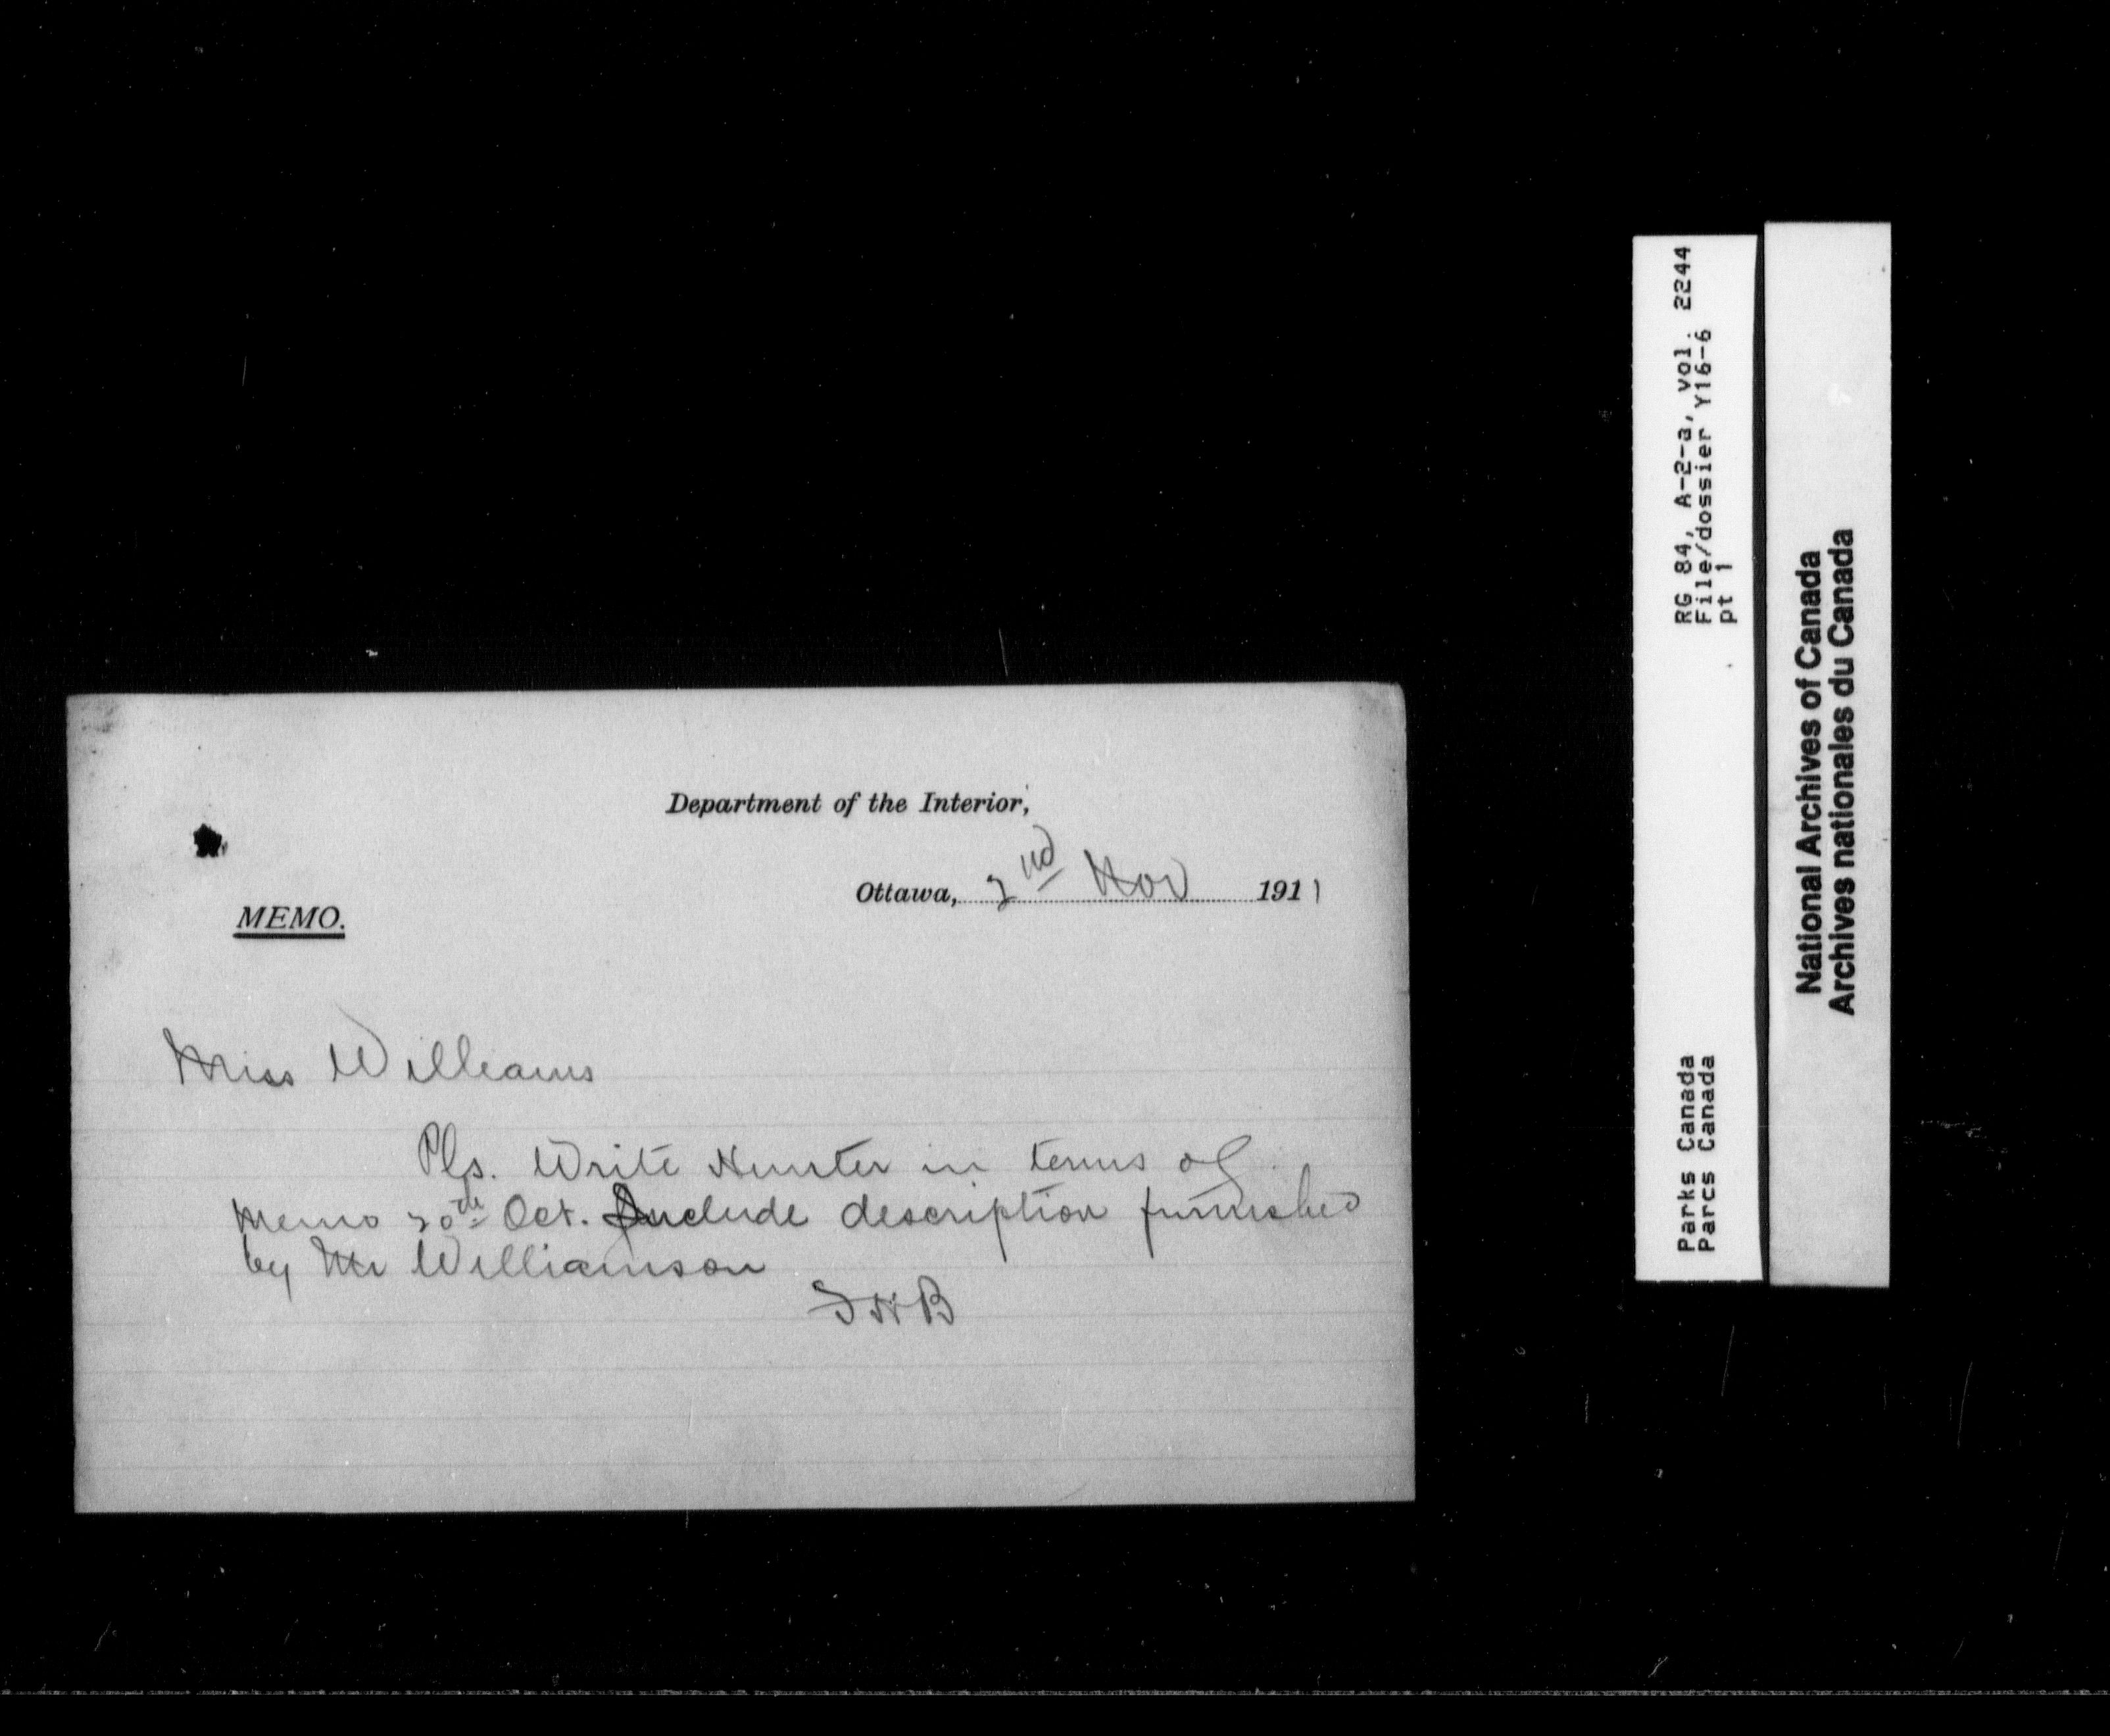 Department of the Interior,
Ottawa, 2nd Nov 1911
MEMO.
Miss Williams
Pls. Write Hunter in terms of
memo 20th Oct. Include description furnished
by Mr Williamson
FHB
RG 84, A-2-a, vol. 2244
File/dossier Y16-6
pt 1
Parks Canada
Parcs Canada
National Archives of Canada
Archives nationales du Canada